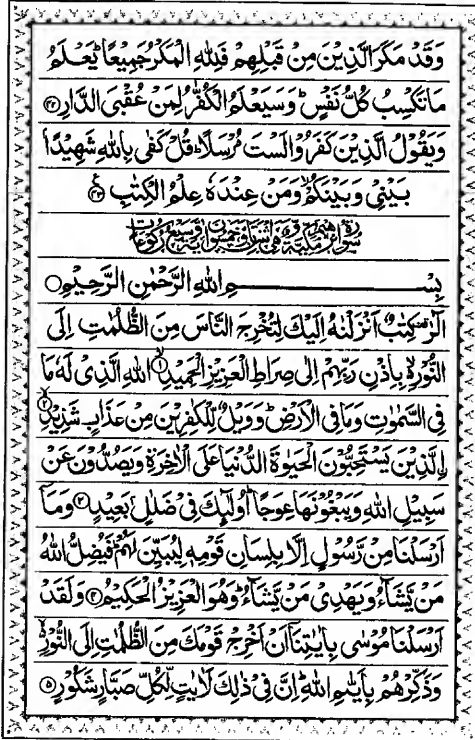 وَقَدْ مَكَرَ الَّذِيْنَ مِنْ قَبْلِهِمْ فَلِلّٰهِ الْمَكْرُ جَمِيْعًا ؕ يَعْلَمُ
مَا تَكْسِبُ كُلُّ نَفْسٍ ؕ وَسَيَعْلَمُ الْكُفّٰرُ لِمَنْ عُقْبَى الدَّارِ ﴿۴۲﴾
وَيَقُوْلُ الَّذِيْنَ كَفَرُوْا لَسْتَ مُرْسَلًا ؕ قُلْ كَفٰى بِاللّٰهِ شَهِيْدًۢا
بَيْنِيْ وَبَيْنَكُمْ ۙ وَمَنْ عِنْدَهٗ عِلْمُ الْكِتٰبِ ﴿۴۳﴾
سورة ابرٰهيم مكية وهى اثنتان وخمسون اٰية وسبع ركوعات
بِسْمِ اللّٰهِ الرَّحْمٰنِ الرَّحِيْمِ ۝
الٓرٰ ۟ كِتٰبٌ اَنْزَلْنٰهُ اِلَيْكَ لِتُخْرِجَ النَّاسَ مِنَ الظُّلُمٰتِ اِلَى
النُّوْرِ ۙ بِاِذْنِ رَبِّهِمْ اِلٰى صِرَاطِ الْعَزِيْزِ الْحَمِيْدِ ۙ﴿۱﴾ اللّٰهِ الَّذِيْ لَهٗ مَا
فِى السَّمٰوٰتِ وَمَا فِى الْاَرْضِ ؕ وَوَيْلٌ لِّلْكٰفِرِيْنَ مِنْ عَذَابٍ شَدِيْدِ ۙ﴿۲﴾
اِ۟لَّذِيْنَ يَسْتَحِبُّوْنَ الْحَيٰوةَ الدُّنْيَا عَلَى الْاٰخِرَةِ وَيَصُدُّوْنَ عَنْ
سَبِيْلِ اللّٰهِ وَيَبْغُوْنَهَا عِوَجًا ؕ اُولٰٓئِكَ فِيْ ضَلٰلٍۢ بَعِيْدٍ ﴿۳﴾ وَمَاۤ
اَرْسَلْنَا مِنْ رَّسُوْلٍ اِلَّا بِلِسَانِ قَوْمِهٖ لِيُبَيِّنَ لَهُمْ ؕ فَيُضِلُّ اللّٰهُ
مَنْ يَّشَآءُ وَيَهْدِيْ مَنْ يَّشَآءُ ؕ وَهُوَ الْعَزِيْزُ الْحَكِيْمُ ﴿۴﴾ وَلَقَدْ
اَرْسَلْنَا مُوْسٰى بِاٰيٰتِنَاۤ اَنْ اَخْرِجْ قَوْمَكَ مِنَ الظُّلُمٰتِ اِلَى النُّوْرِ ۙ
وَذَكِّرْهُمْ بِاَيّٰىمِ اللّٰهِ ؕ اِنَّ فِيْ ذٰلِكَ لَاٰيٰتٍ لِّكُلِّ صَبَّارٍ شَكُوْرٍ ﴿۵﴾